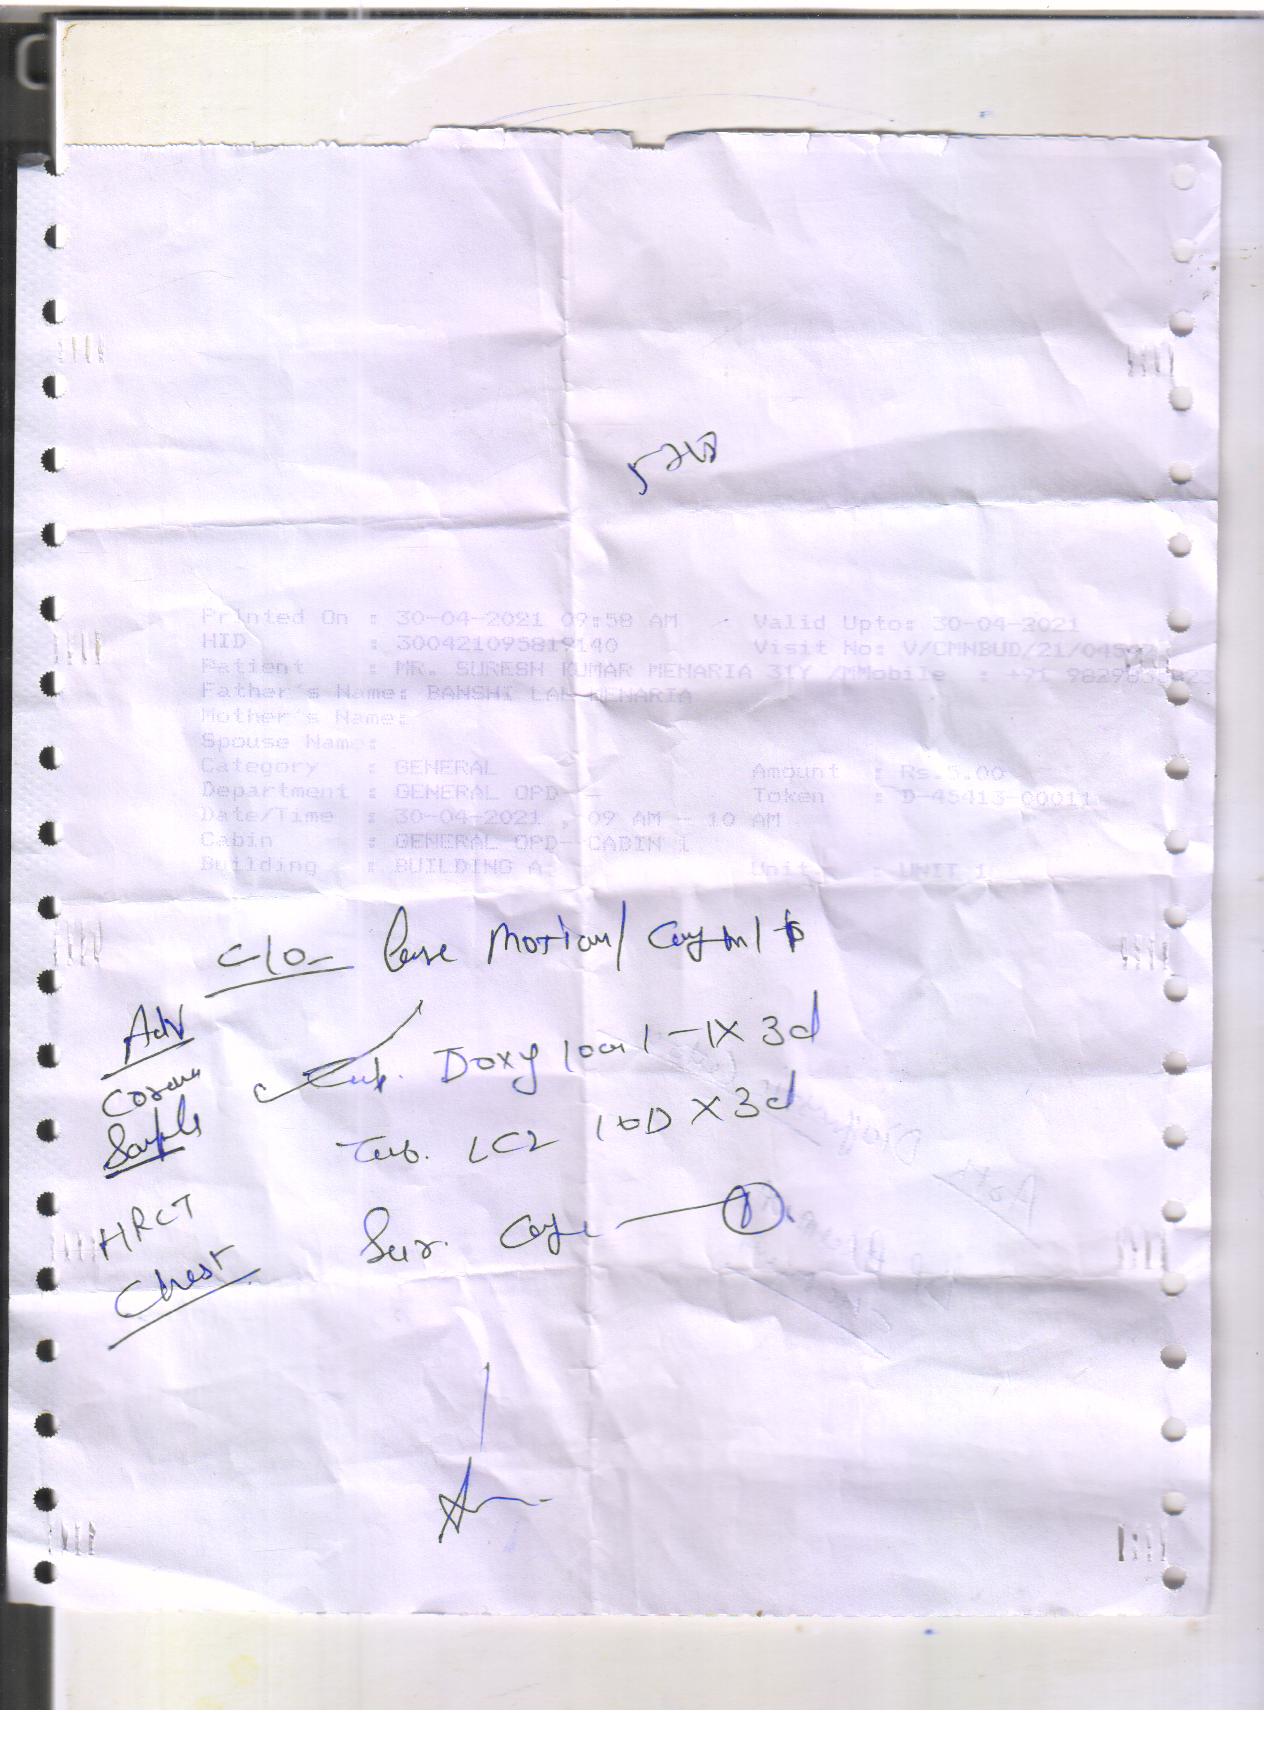 Printed On : 30-04-2021 09:58 AM - Valid Upto: 30-04-2021
HID : 300421095819140 Visit No: V/CMNBUD/21/045
Patient : MR. SURESH KUMAR MENARIA 31Y /MMobile : +91
Father's Name: BANSHI LAL MENARIA
Mother's Name:
Spouse Name:
Category : GENERAL Amount : Rs.5.00
Department : GENERAL OPD -- Token : D-45413-00011
Date/Time : 30-04-2021 , 09 AM - 10 AM
Cabin : GENERAL OPD- CABIN 1
Building : BUILDING A Unit : UNIT 1
C/O- Motion/
Adv
Corona
Sample
HRCT
Chest
Tab. Doxy 100 1-1X3d
Tab. LCZ 1OD X 3d
①